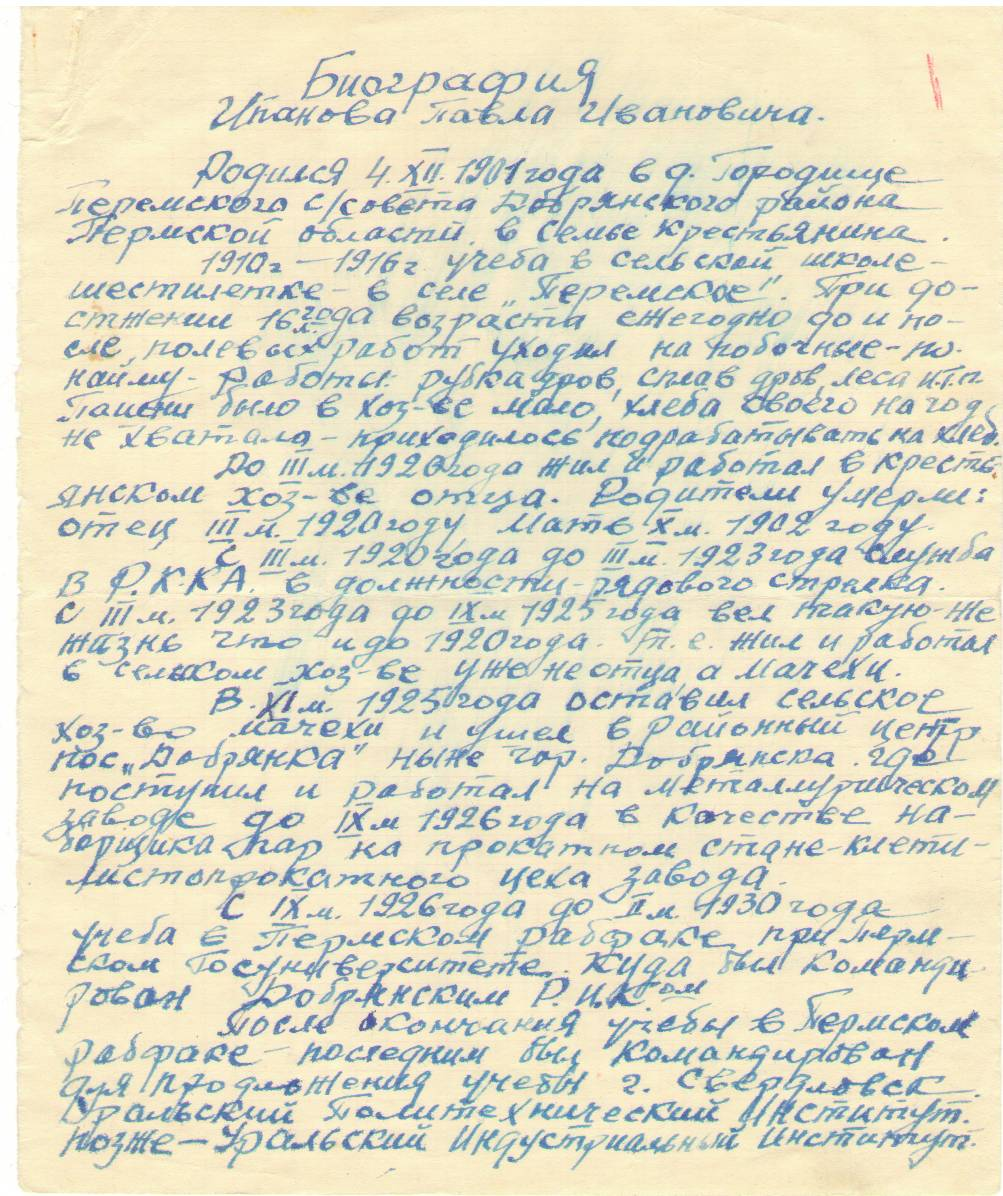 Биография
Ипанова Павла Ивановича.
Родился 4.XII.1901 года в д. Городище
Перемского с/совета Добрянского района
Пермской области, в семье крестьянина.
1910г – 1916г учеба в сельской школе-
шестилетке – в селе „Перемское". При до-
стжении 16 л. года возраста ежегодно до и по-
сле, полевых работ уходил на побочные – по-
найму – работы: рубка дров, сплав дров, леса и.т.п.
Пашни было в хоз-ве мало, хлеба своего на год
не хватало – приходилось подрабатывать на хлеб.
До III м. 1920 года жил и работал в кресть-
янском хоз-ве отца. Родители умерли:
отец III м. 1920 году, мать X м. 1902 году.
С III м. 1920 года до III м. 1923 года служба
в Р.К.К.А. в должности – рядового стрелка.
С III м. 1923 года до IX м 1925 года вел такую-же
жизнь что и до 1920 года. т. е. жил и работал
в сельском хоз-ве уже не отца, а мачехи.
В XI м. 1925 года оставил сельское
хоз-во мачехи и ушел в районный центр
пос „Добрянка" ныне гор. Добрянска где
поступил и работал на металлургическом
заводе до IX м 1926 года в качестве на-
борщика пар на прокатном стане-клети-
листопрокатного цеха завода.
С IX м. 1926 года до II м. 1930 года
учеба в Пермском рабфаке при Перм-
ском Госуниверситете. Куда был команди
рован Добрянским Р.И.К ом
После окончания учебы в Пермском
рабфаке – последним был командирован
для продолжения учебы г. Свердловск
Уральский Политехнический Институт.
позже – Уральский Индустриальный институт.